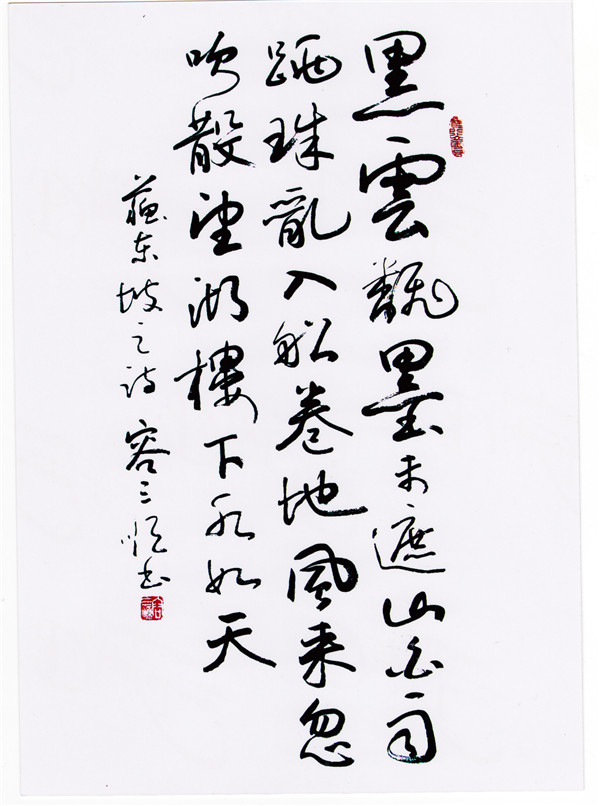 黑雲飜墨未遮山白雨
跳珠亂入船卷地風来忽
吹散望湖樓下水如天
蘇东坡之诗 容三书